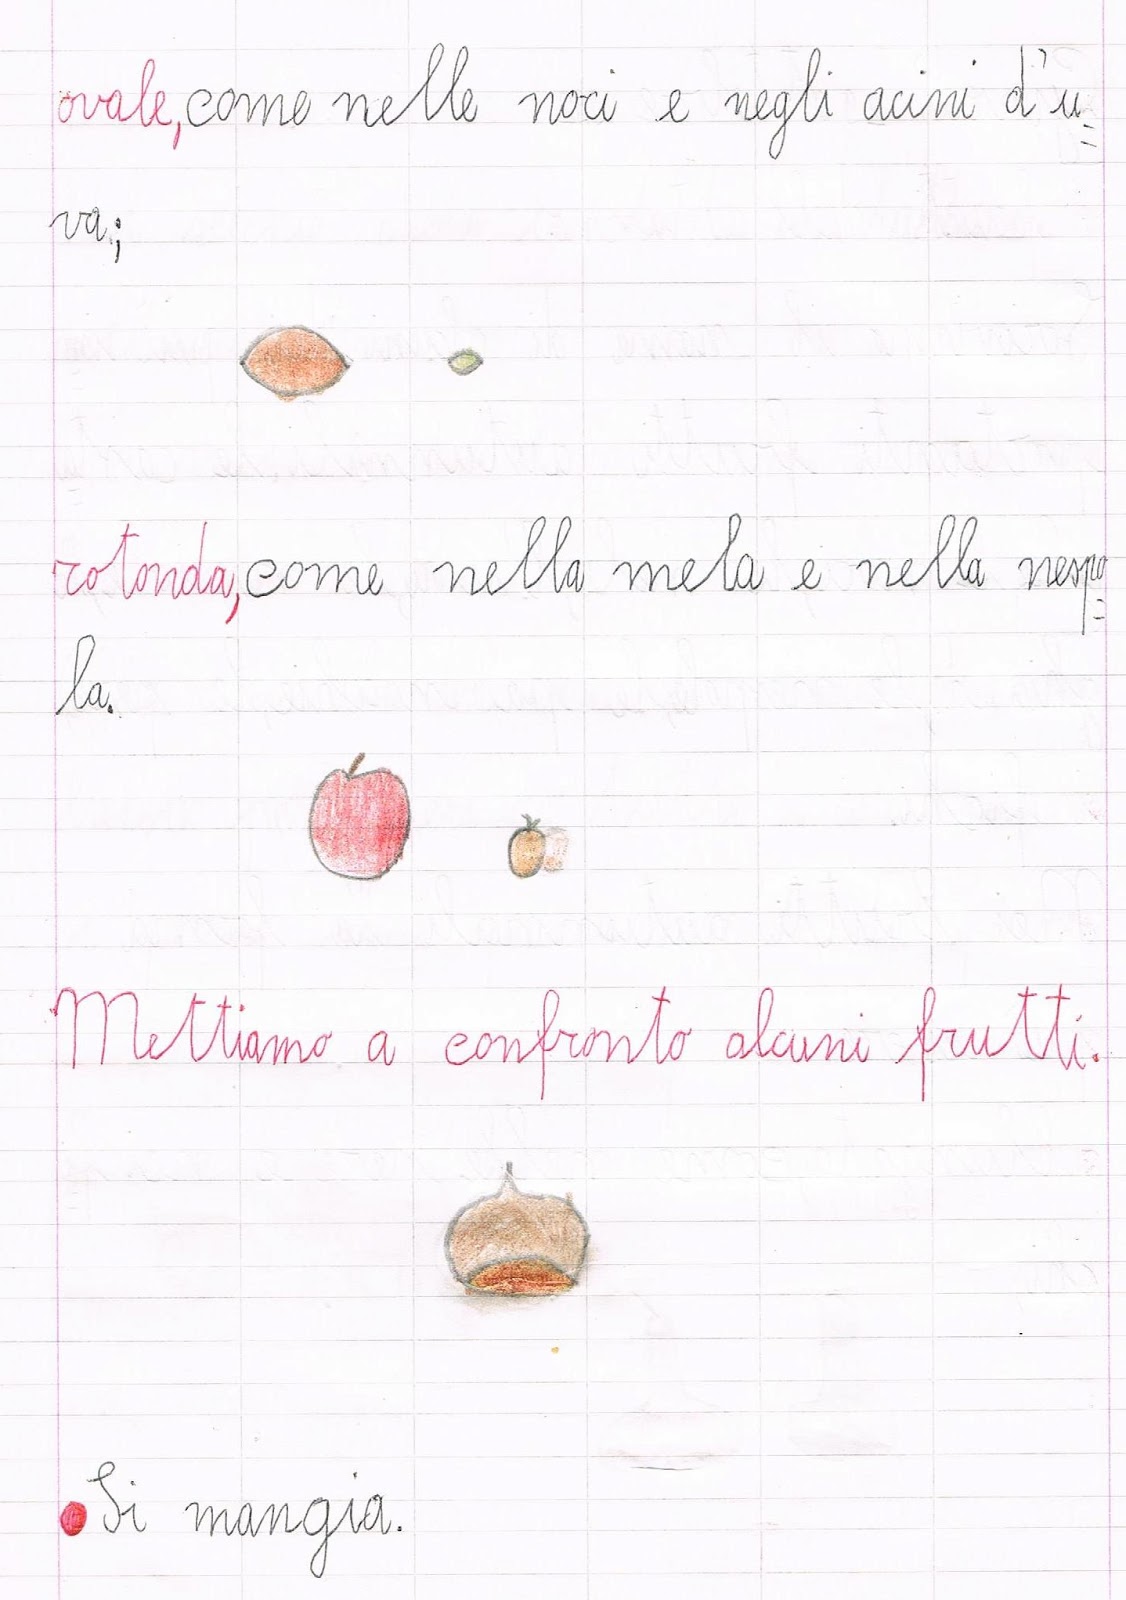 ovale, come nelle noci e negli acini d'u=
va;
rotonda, come nella mela e nella nespo=
la.
Mettiamo a confronto alcuni frutti.
Si mangia.